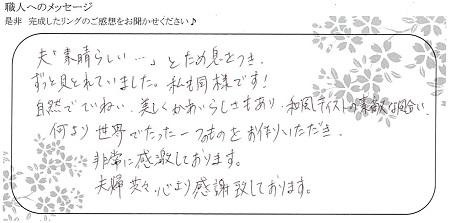 職人へのメッセージ
是非 完成したリングのご感想をお聞かせください♪
夫「素晴らしい…」とため息をつき、
ずっと見とれていました。私も同様です！
自然でていねい、美しくかわいらしさもあり、和風テイストの素敵な風合い、
何より世界でたった一つのものをお作りいただき、
非常に感激しております。
夫婦共々、心より感謝致しております。